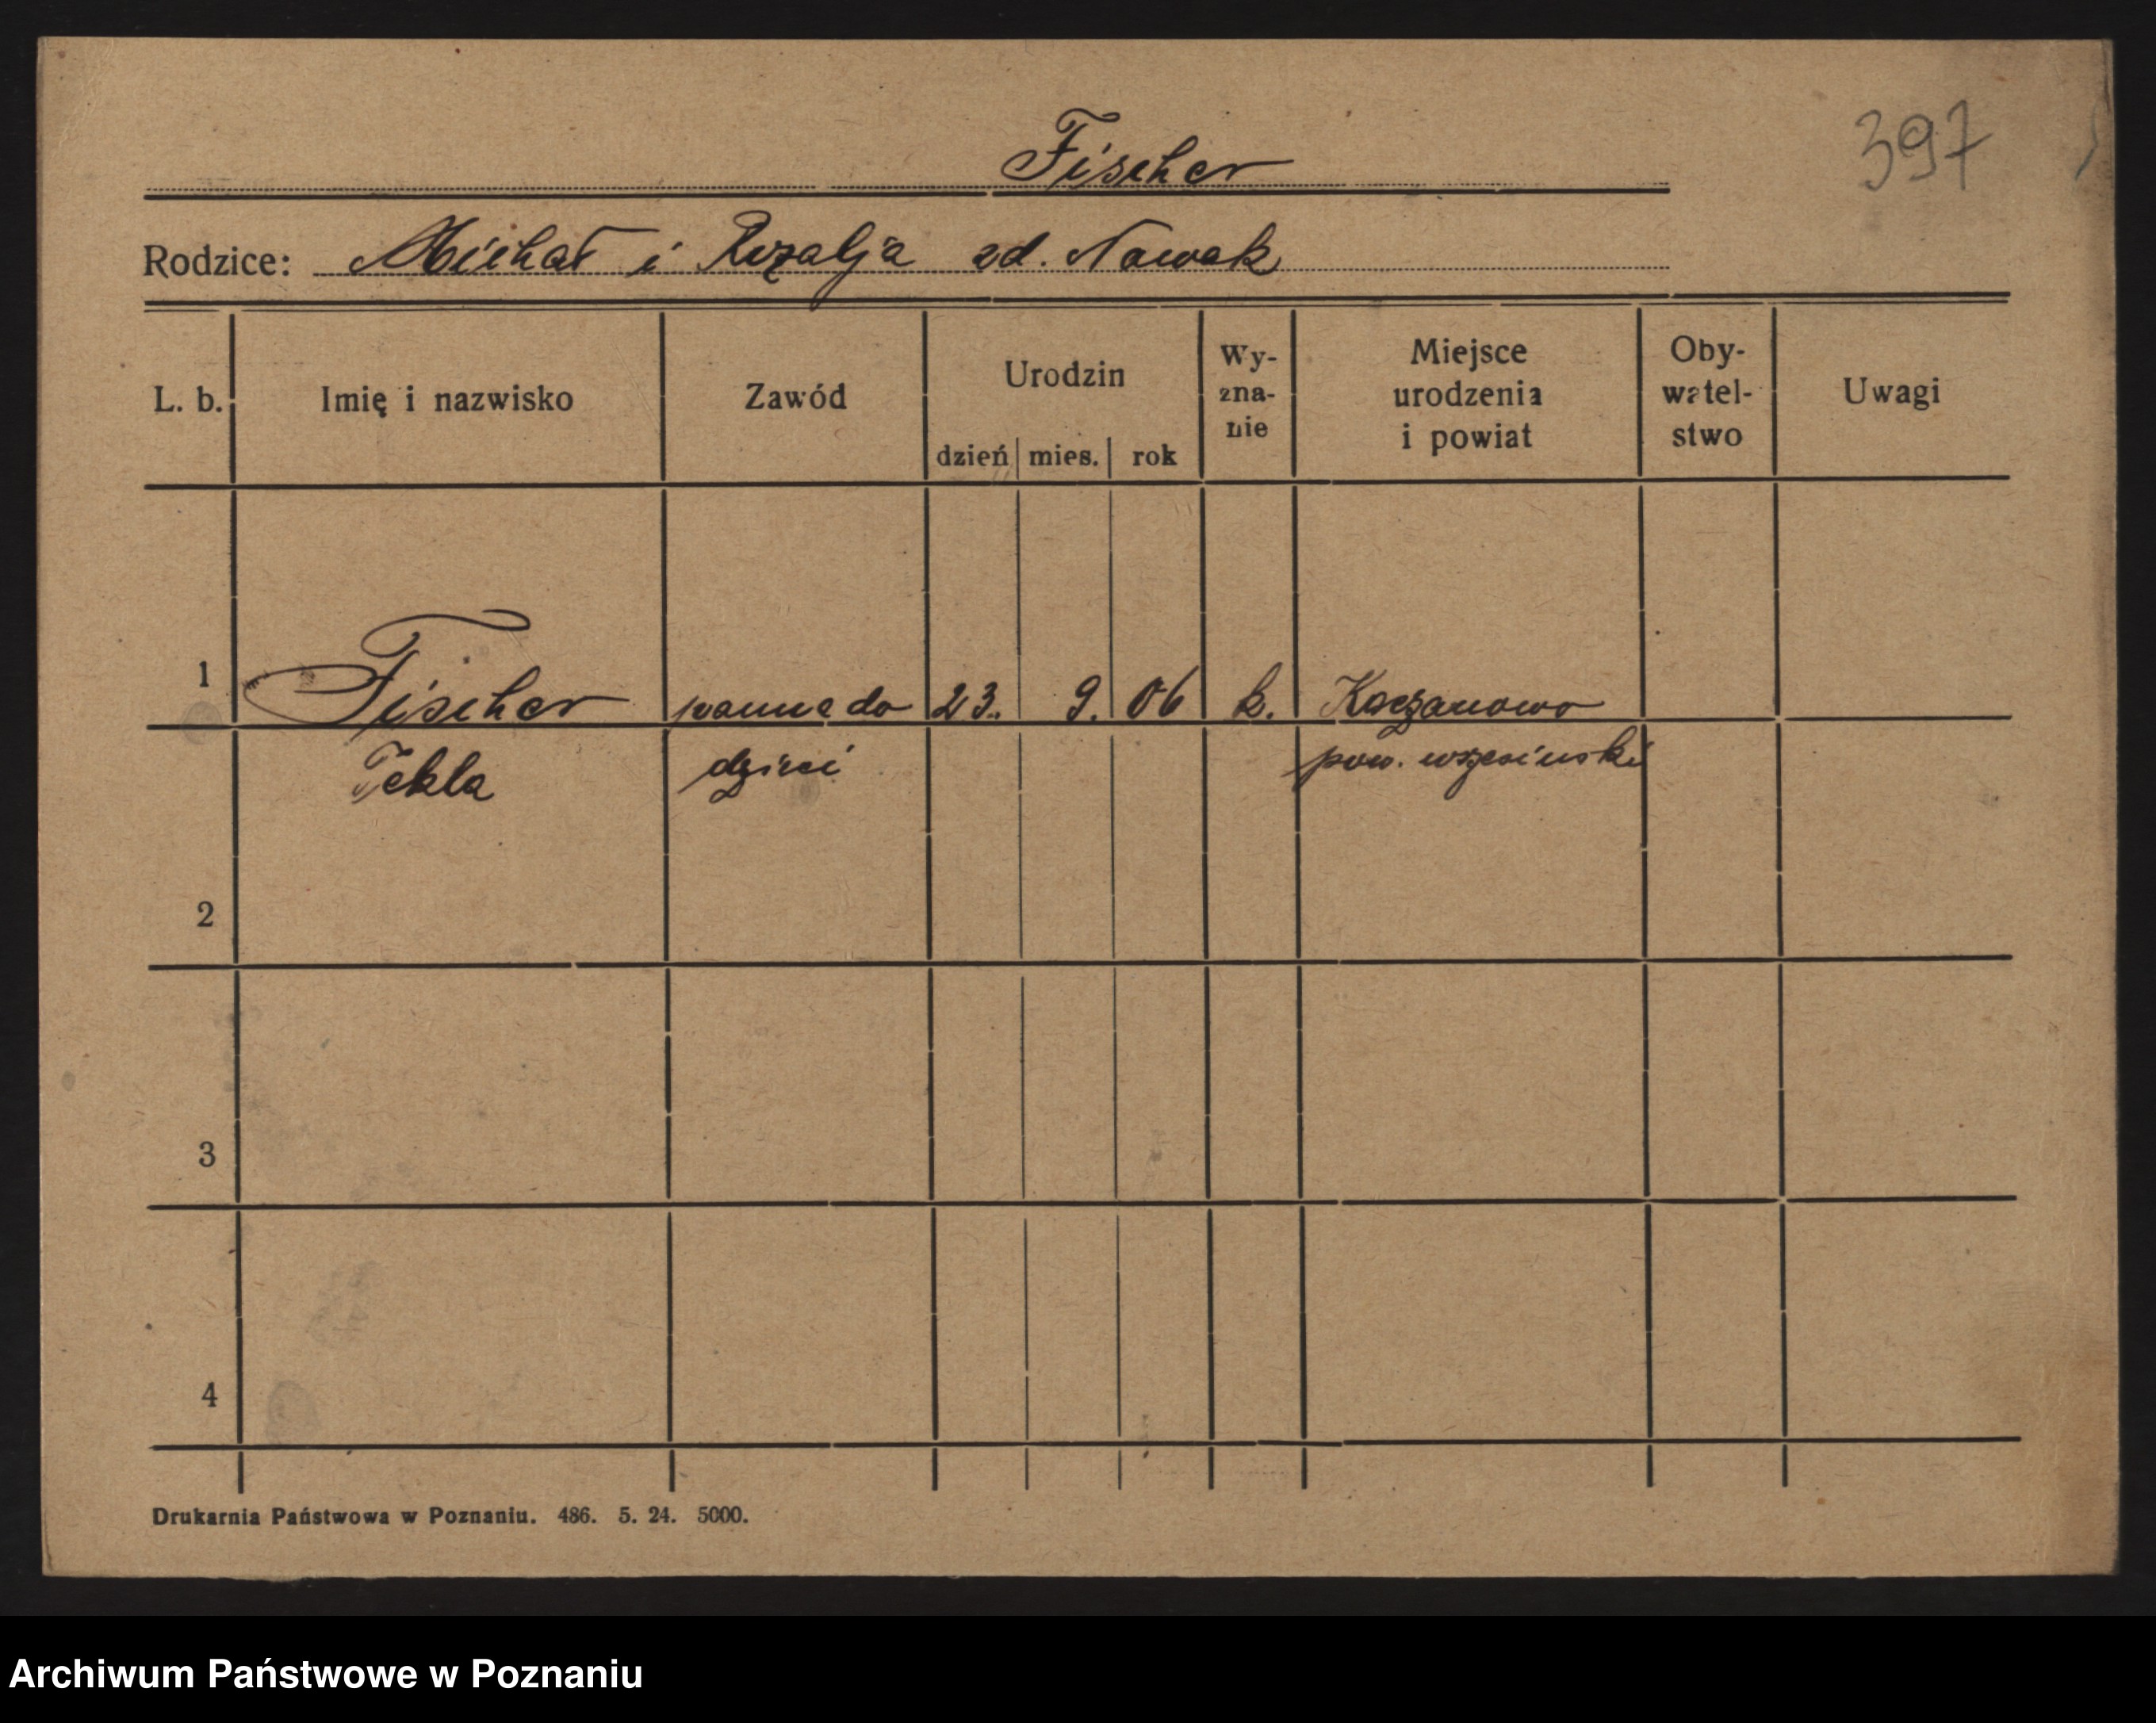 Fischer
397
Rodzice: Michał i Rozalja zd. Nowak
L. b.
Imię i nazwisko
Zawód
Urodzin
dzień mies. rok
Wy-
zna-
nie
Miejsce
urodzenia
i powiat
Oby-
watel-
stwo
Uwagi
1 Fischer panna do 23. 9. 06 k. Kaczanowo
Tekla dzieci pow. wrzesiński
2
3
4
Drukarnia Państwowa w Poznaniu. 486. 5. 24. 5000.
Archiwum Państwowe w Poznaniu